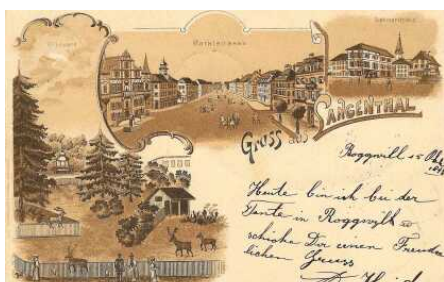 Marktgasse
Gruss aus
LANGENTHAL
Roggwill 15 Okt.
Heute bin ich bei der
Tante in Roggwill
schicke Dir einen Freund
lichen Gruss